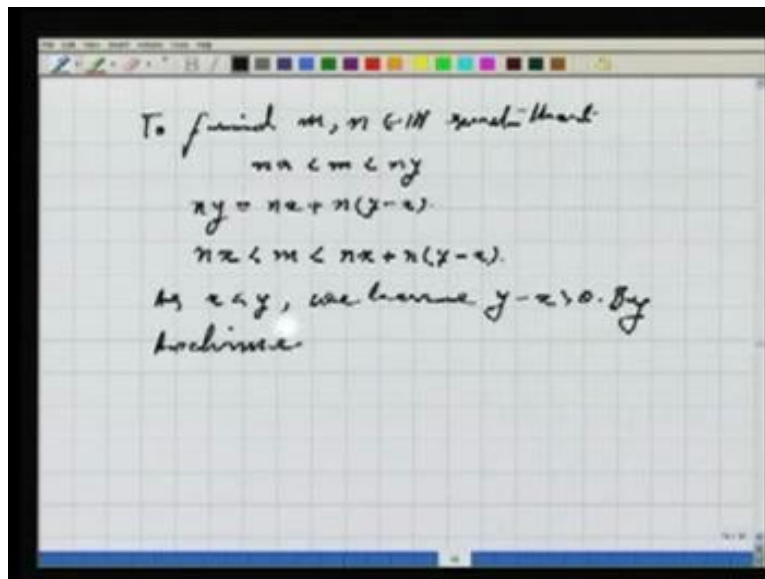 To find m, n ∈ ℕ such that
nx < m < ny
ny = nx + n(y-x).
nx < m < nx + n(y-x).
As x < y, we have y - x > 0. By
Archime